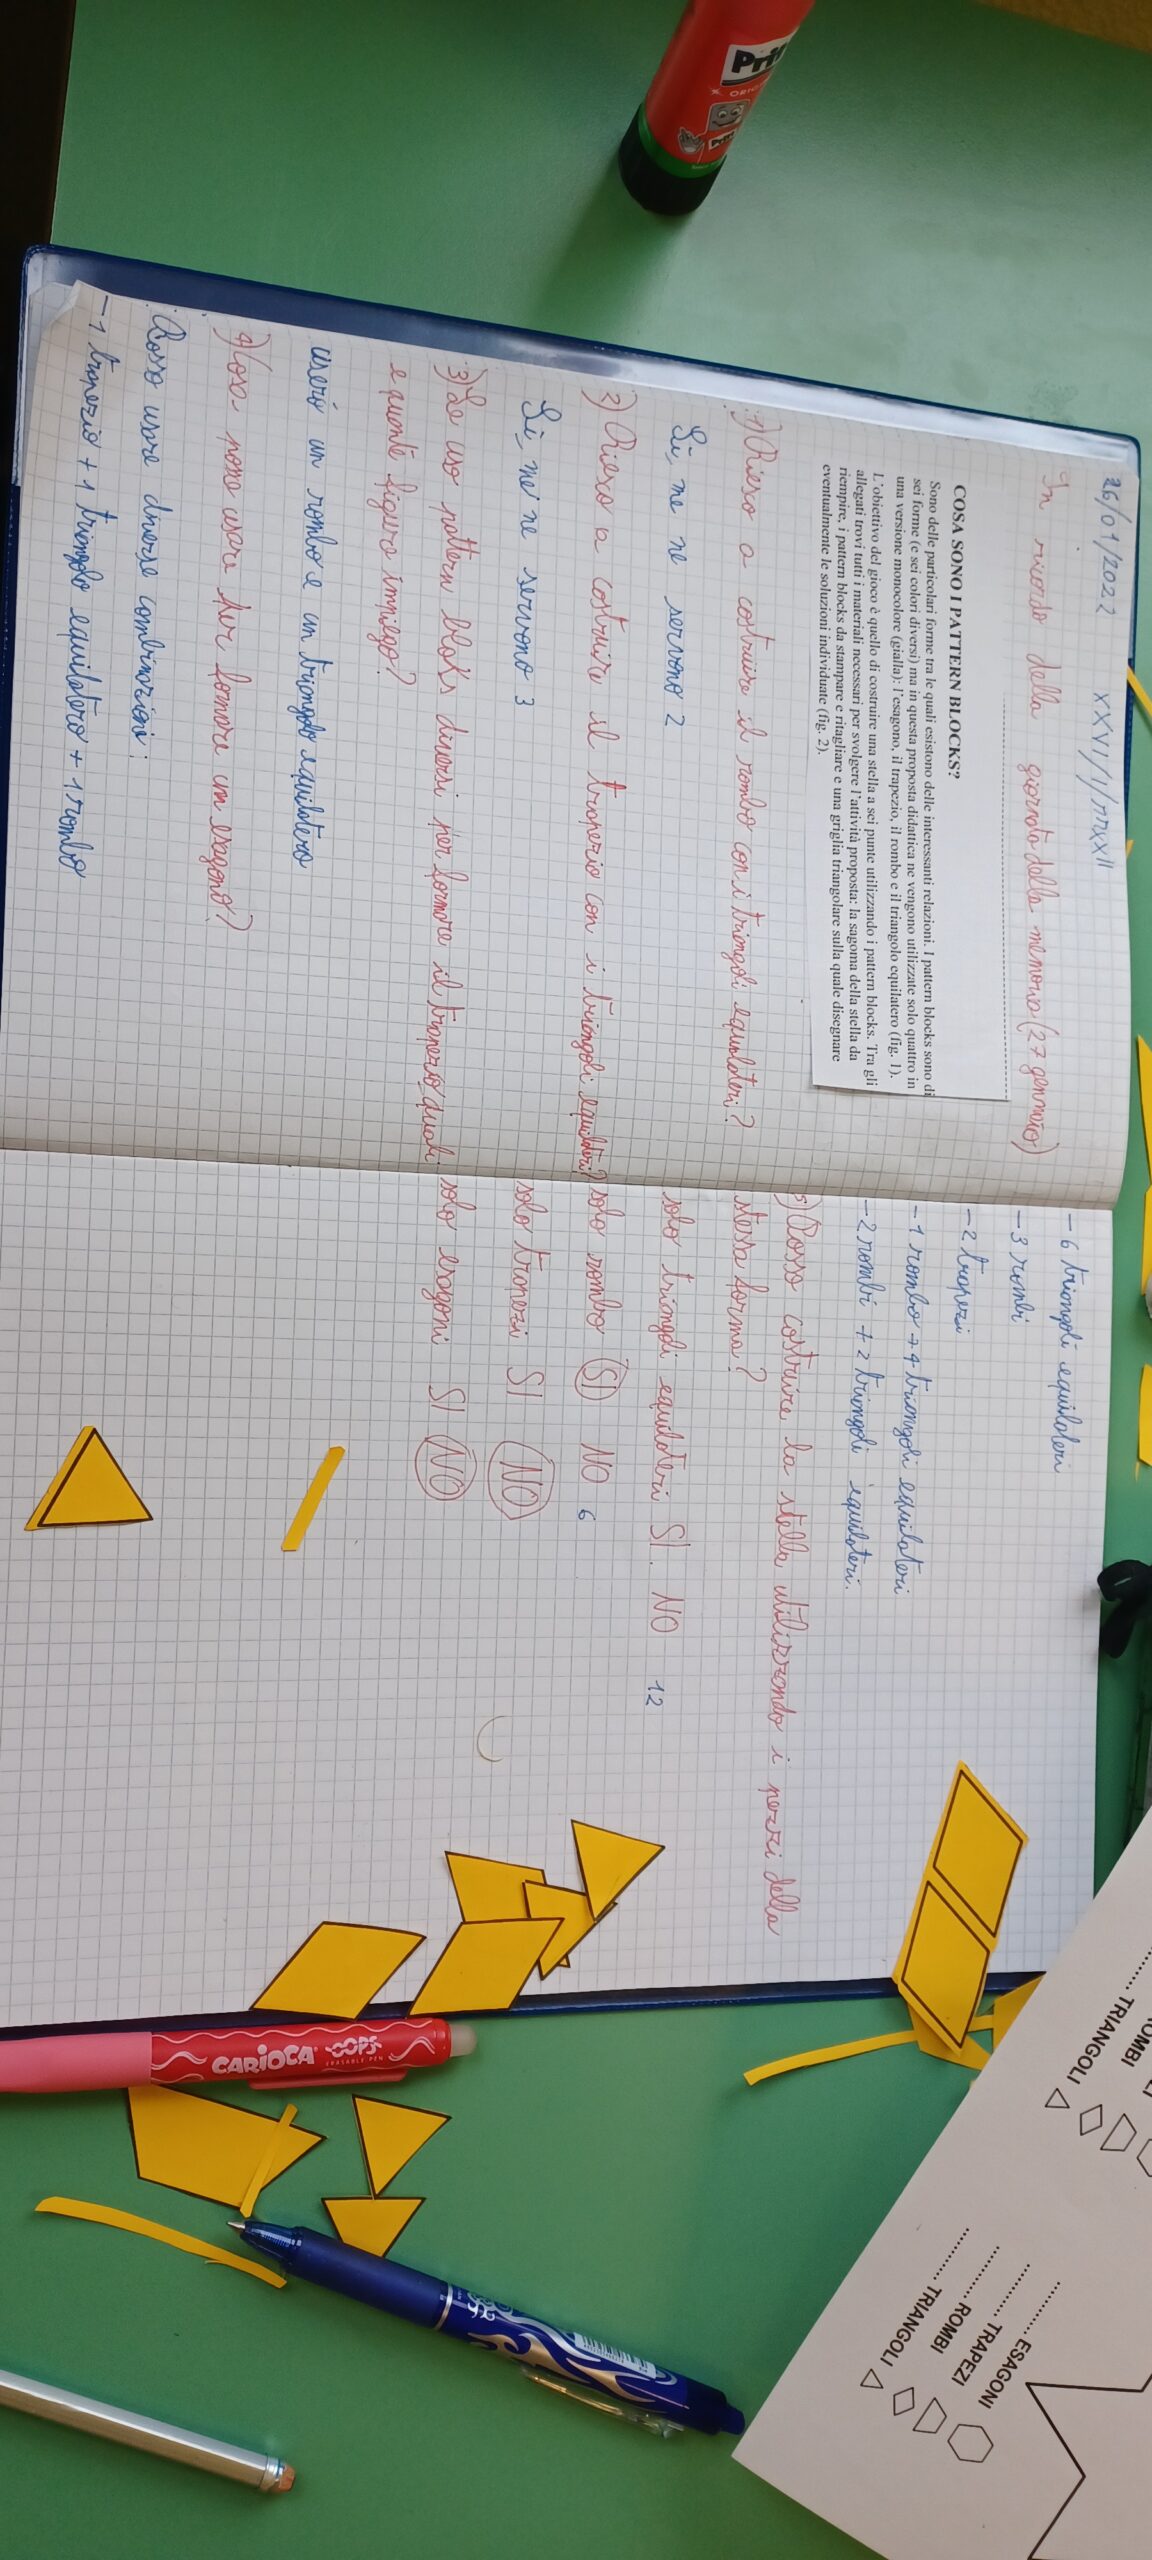 26/01/2022 XXVI/I/MMXXII
In ricordo della giornata della memoria (27 gennaio)
COSA SONO I PATTERN BLOCKS?
Sono delle particolari forme tra le quali esistono delle interessanti relazioni. I pattern blocks sono di
sei forme (e sei colori diversi) ma in questa proposta didattica ne vengono utilizzate solo quattro in
una versione monocolore (gialla): l'esagono, il trapezio, il rombo e il triangolo equilatero (fig. 1).
L'obiettivo del gioco è quello di costruire una stella a sei punte utilizzando i pattern blocks. Tra gli
allegati trovi tutti i materiali necessari per svolgere l'attività proposta: la sagoma della stella da
riempire, i pattern blocks da stampare e ritagliare e una griglia triangolare sulla quale disegnare
eventualmente le soluzioni individuate (fig. 2).
1) Riesco a costruire il rombo con i triangoli equilateri?
Si, ne ne servono 2
2) Riesco a costruire il trapezio con i triangoli equilateri?
Si, ne ne servono 3
3) Se uso pattern blocks diversi per formare il trapezio, quali
e quante figure impiego?
userò un rombo e un triangolo equilatero
4) Cosa posso usare per formare un esagono?
Posso usare diverse combinazioni:
-1 trapezio + 1 triangolo equilatero + 1 rombo
-6 triangoli equilateri
-3 rombi
-2 trapezi
-1 rombo + 4 triangoli equilateri
-2 rombi + 2 triangoli equilateri.
5) Posso costruire la stella utilizzando i pezzi della
stessa forma?
solo triangoli equilateri SI. NO 12
solo rombo SI NO 6
solo trapezi SI NO
solo esagoni SI NO
Prit
ORIG
Prit
CARIOCA OOPS
ERASABLE PEN
ROMBI
TRIANGOLI
ESAGONI
TRAPEZI
ROMBI
TRIANGOLI